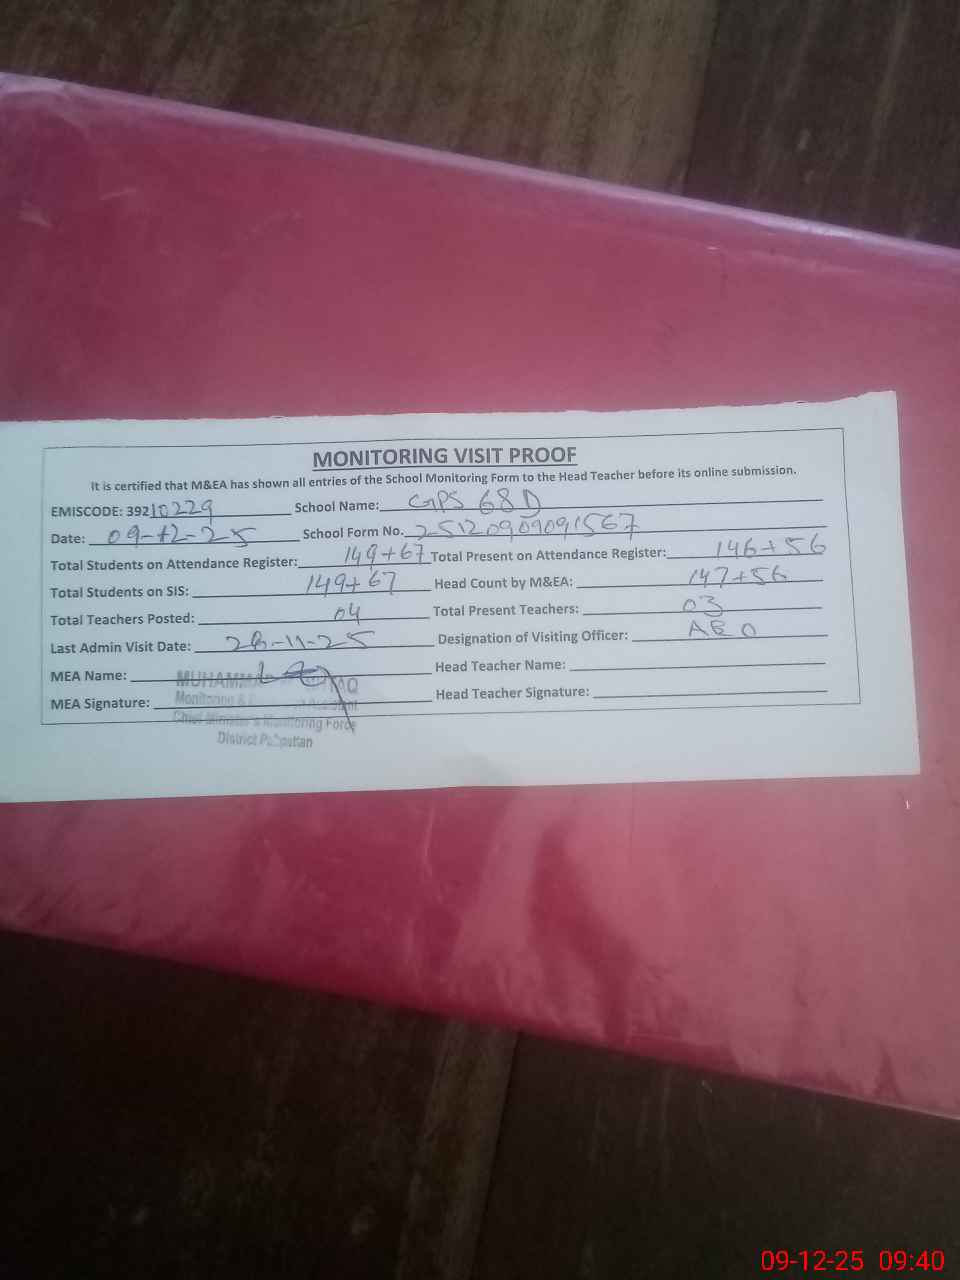 MONITORING VISIT PROOF
It is certified that M&EA has shown all entries of the School Monitoring Form to the Head Teacher before its online submission.
EMISCODE: 39210229 School Name: GPS 68 D
Date: 09-12-25 School Form No. 25120909091567
Total Students on Attendance Register: 149+67 Total Present on Attendance Register: 146+56
Total Students on SIS: 149+67 Head Count by M&EA: 147+56
Total Teachers Posted: 04 Total Present Teachers: 03
Last Admin Visit Date: 28-11-25 Designation of Visiting Officer: AEO
MEA Name: Head Teacher Name:
MEA Signature: Head Teacher Signature:
Monitoring &
Chief Minister's Monitoring Force
District Pakpattan
09-12-25 09:40